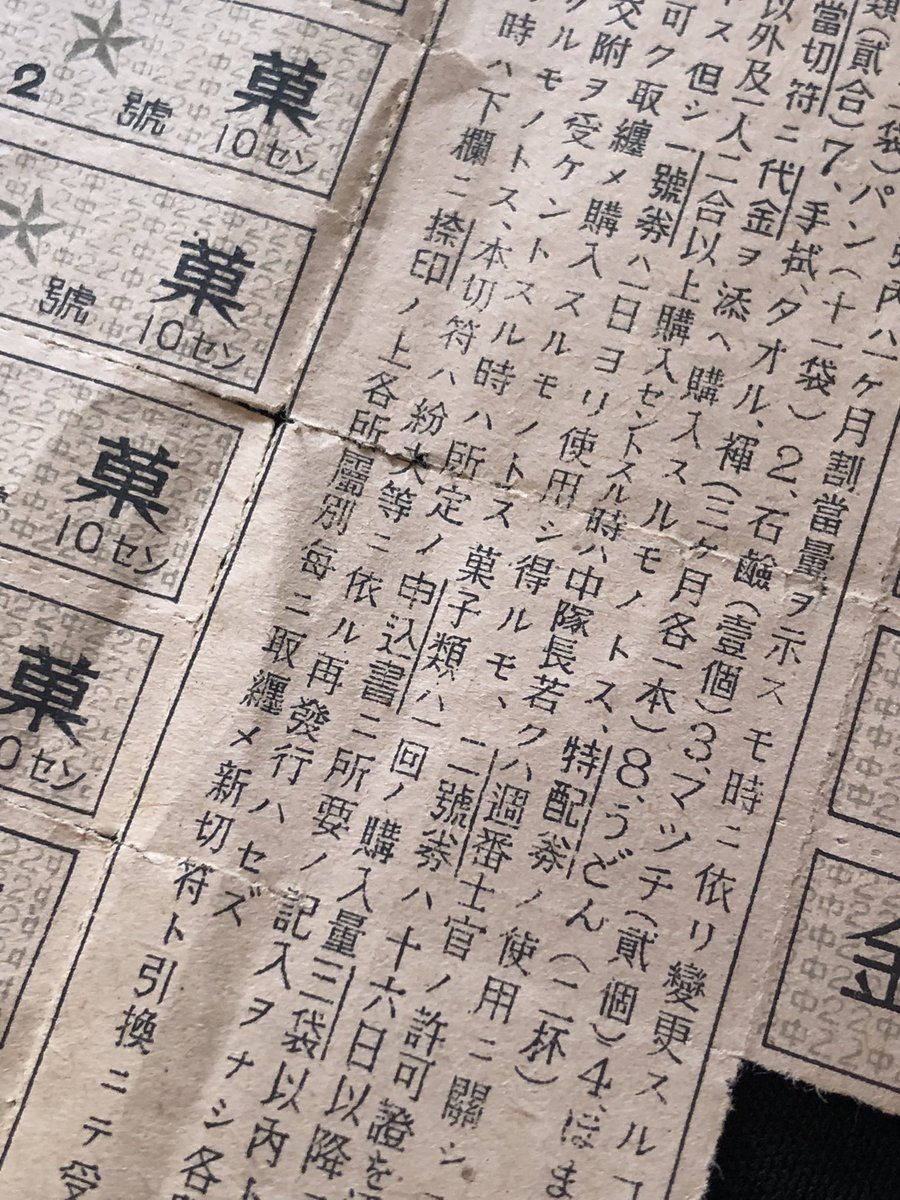 內ハ一ヶ月割當量ヲ示スモ時ニ依リ變更スル
一袋)パン(十一袋)2、石鹼(壹個)3、マッチ(貳個)4、ほま
類(貳合)7、手拭、タオル、褌(三ヶ月各一本)8、うどん(二杯)
當切符ニ代金ヲ添ヘ購入スルモノトス、特配券ノ使用ニ關シ
以外及一人二合以上購入セントスル時ハ中隊長若クハ週番士官ノ許可證を
ス但シ一號券ハ一日ヨリ使用シ得ルモ、二號券ハ十六日以降
可ク取纏メ購入スルモノトス菓子類ハ一回ノ購入量三袋以內ト
交附ヲ受ケントスル時ハ所定ノ申込書ニ所要ノ記入ヲナシ各
ルモノトス、本切符ハ紛失等ニ依ル再發行ハセズ
時ハ下欄ニ捺印ノ上各所屬別每ニ取纏メ新切符ト引換ニテ受
菓
2 號 10セン
菓
號 10セン
菓
10セン
菓
0セン
金